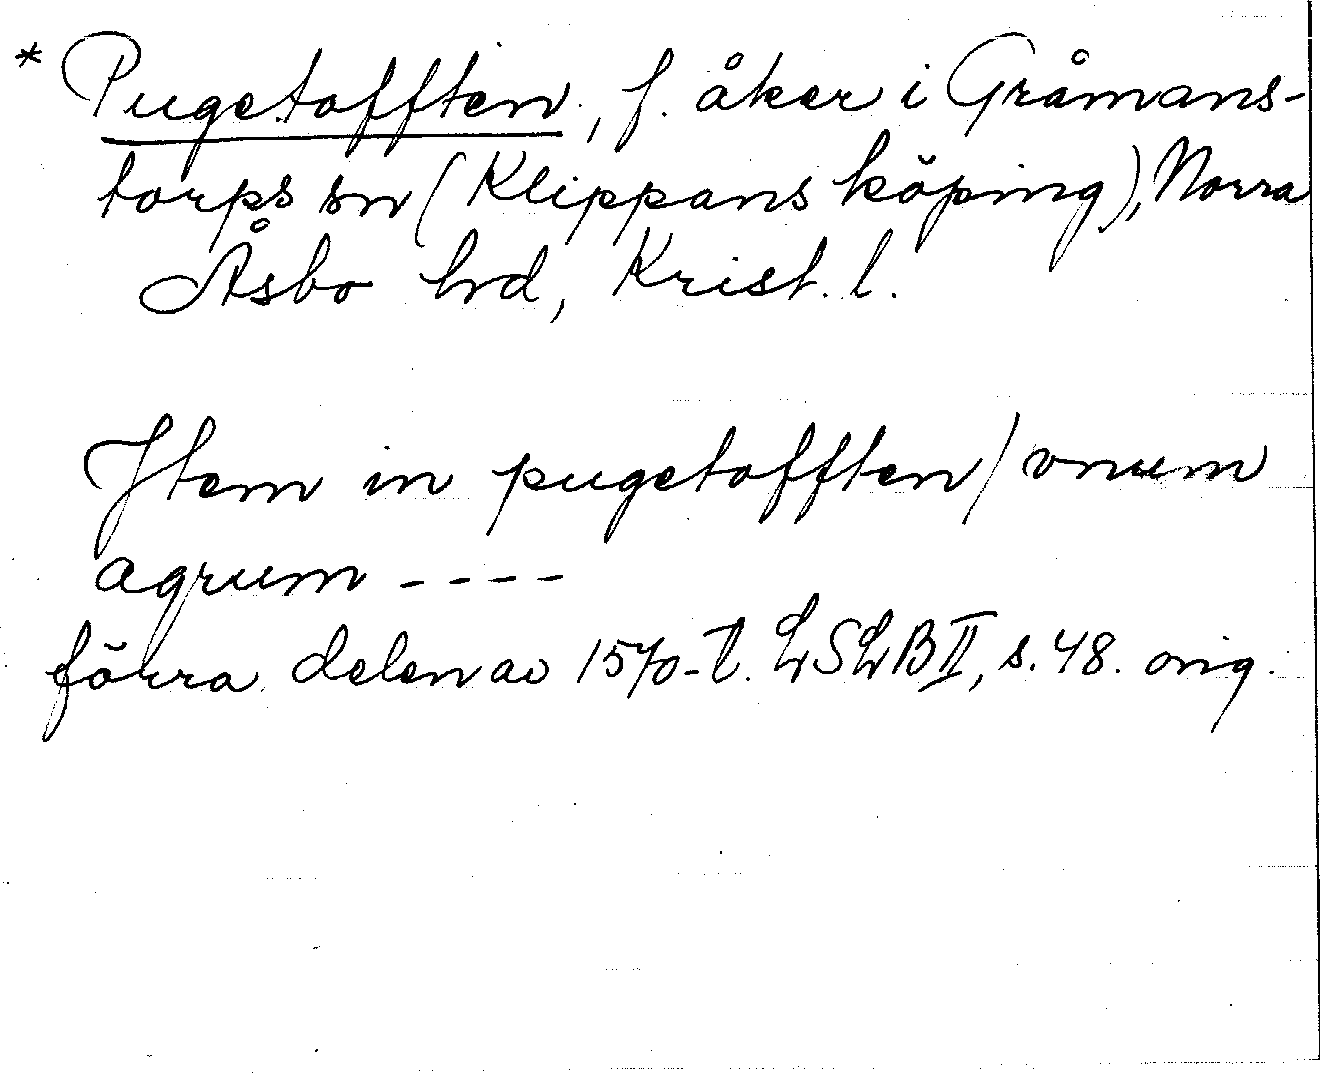 * Pugetofften, f. åker i Gråmans-
torps sn (Klippans köping), Norra
Åsbo hd, Krist. l.
Item in pugetofften / vnum
agrum ----
förra delen av 1570-t. LSLB II, s. 48. orig.